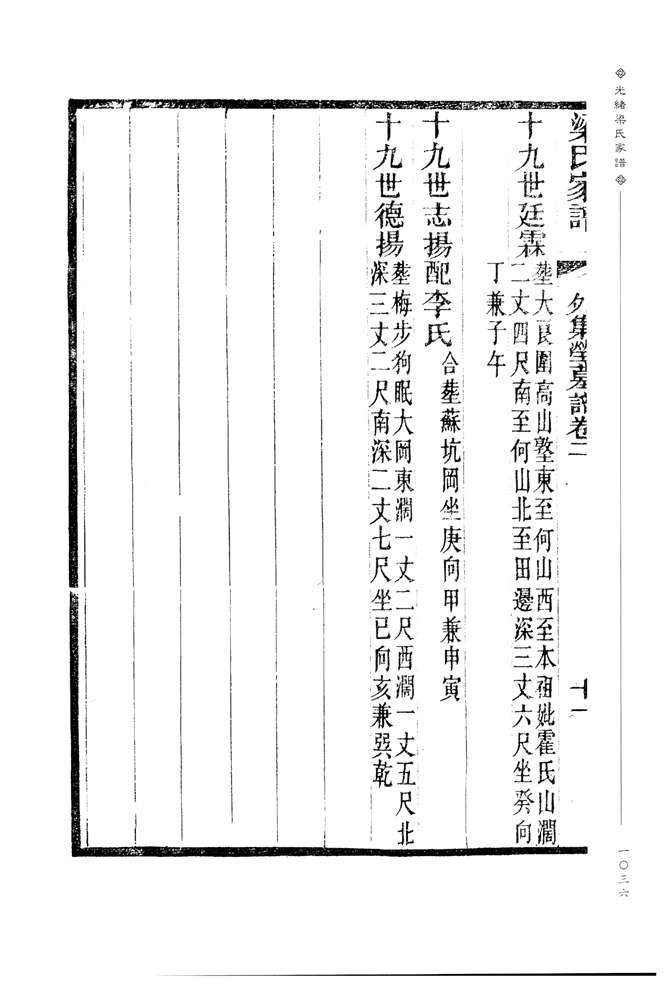 光緒梁氏家譜
一〇三六
梁氏家譜
外集塋墓譜卷二
十一
十九世廷霖
塟大良圍高山塾東至何山西至本祖妣霍氏山濶
二丈四尺南至何山北至田邊深三丈六尺坐癸向
丁兼子午
十九世志揚配李氏
合塟蘇坑岡坐庚向甲兼申寅
十九世德揚
塟梅步狗眠大岡東濶一丈二尺西濶一丈五尺北
深三丈二尺南深二丈七尺坐巳向亥兼巽乾